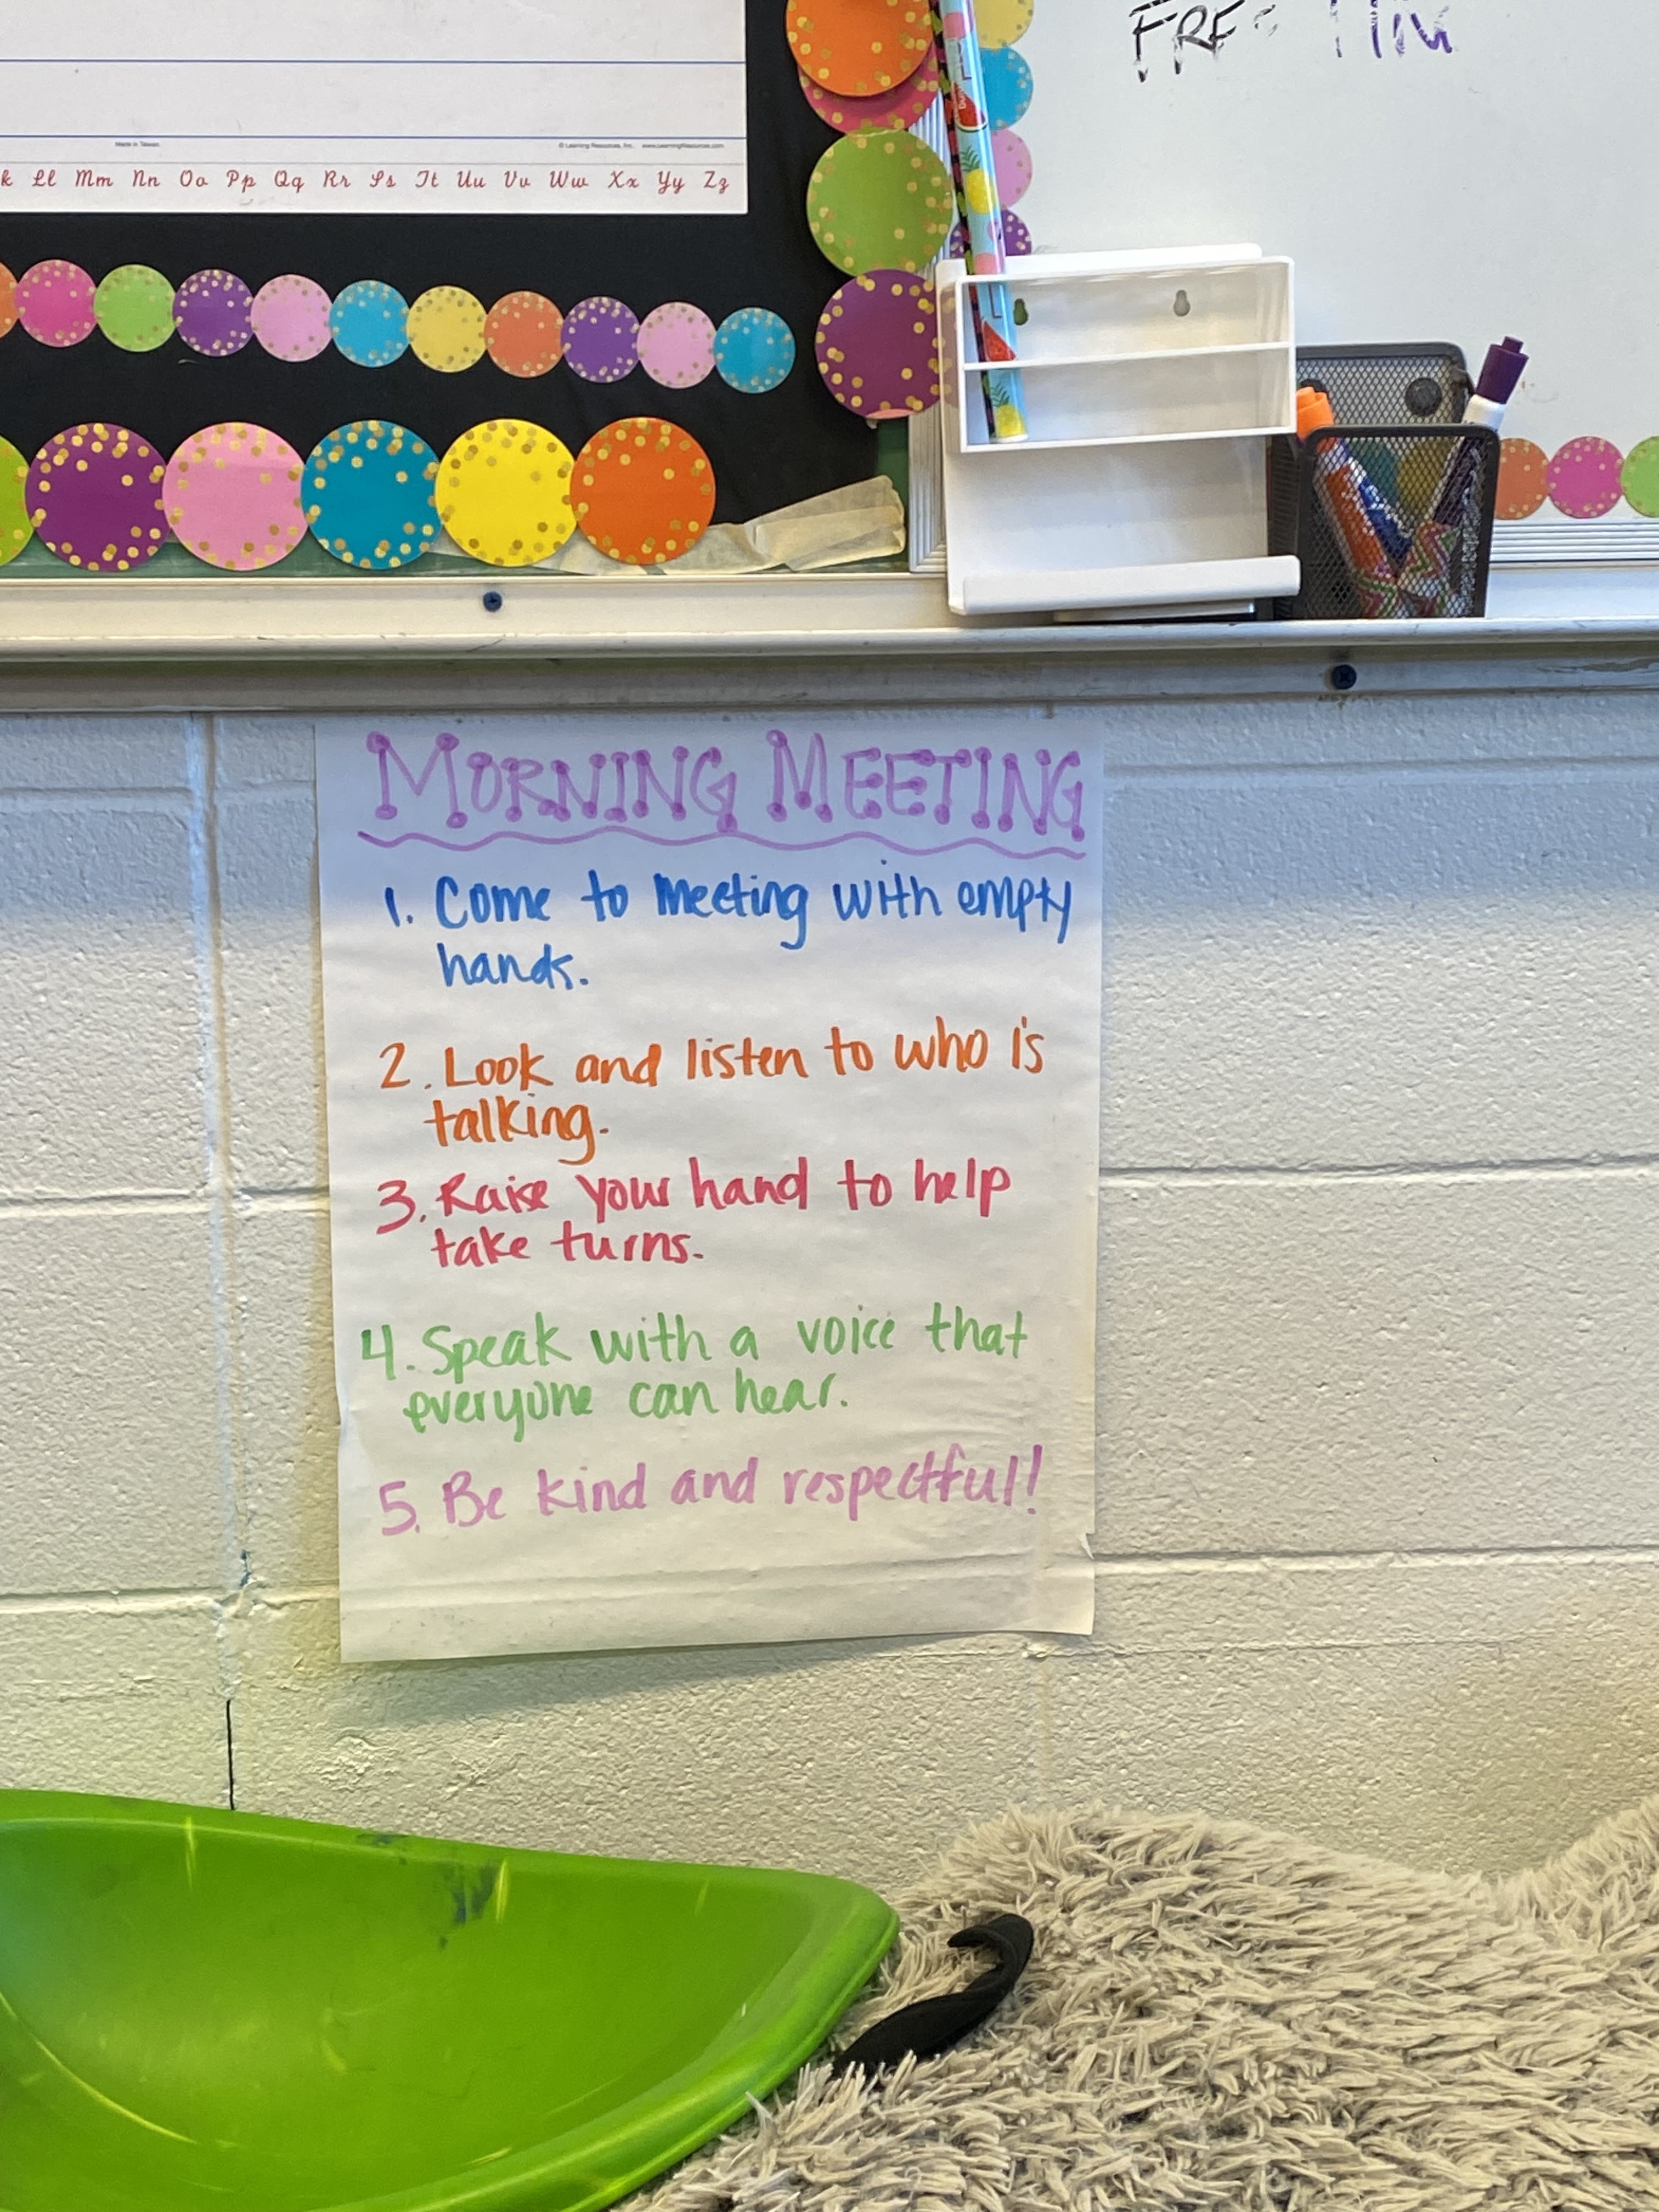 Made in Taiwan.
© Learning Resources, Inc. www.LearningResources.com
k Ll Mm Nn Oo Pp Qq Rr Ss Tt Uu Vv Ww Xx Yy Zz
MORNING MEETING
1. Come to Meeting with empty
hands.
2. Look and listen to who is
talking.
3. Raise your hand to help
take turns.
4. Speak with a voice that
everyone can hear.
5. Be kind and respectful!